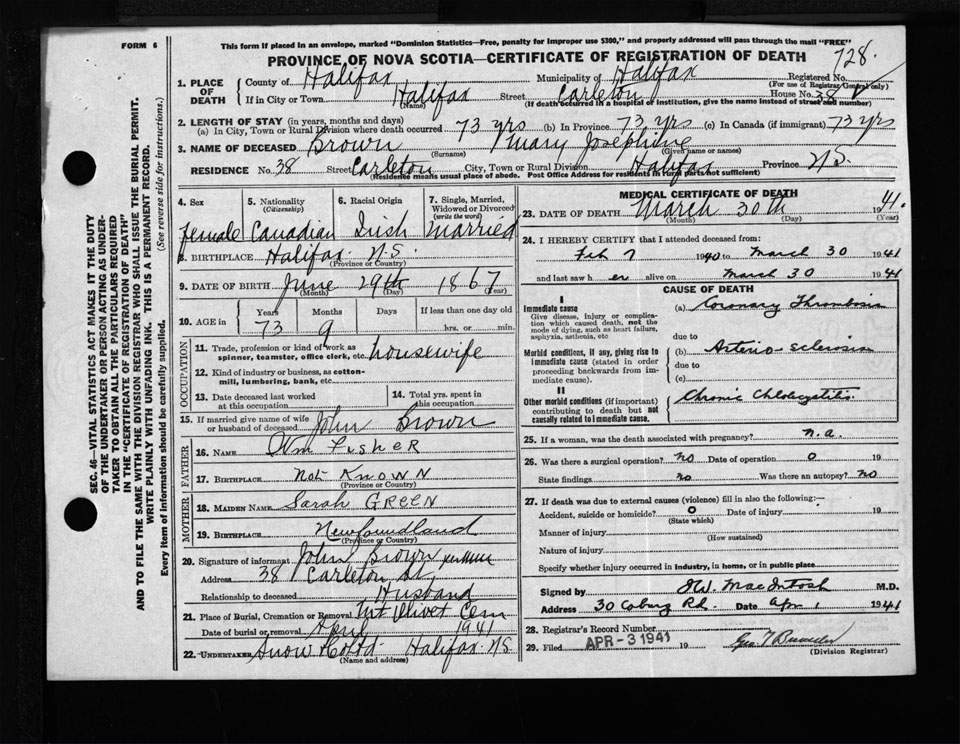 FORM 6
This form if placed in an envelope, marked "Dominion Statistics—Free, penalty for improper use $300," and properly addressed will pass through the mail "FREE"
PROVINCE OF NOVA SCOTIA—CERTIFICATE OF REGISTRATION OF DEATH
728.
1. PLACE OF DEATH
County of Halifax Municipality of Halifax Registered No.
(For use of Registrar General only)
If in City or Town Halifax Street Carleton House No. 38
(Name) (If death occurred in a hospital or institution, give the name instead of street and number)
2. LENGTH OF STAY (in years, months and days)
(a) In City, Town or Rural Division where death occurred 73 yrs (b) In Province 73 yrs (c) In Canada (if immigrant) 73 yrs
3. NAME OF DECEASED Brown Mary Josephine
(Surname) (Given name or names)
RESIDENCE No. 38 Street Carleton City, Town or Rural Division Halifax Province N.S.
(Residence means usual place of abode. Post Office Address for residents in rural parts not sufficient)
4. Sex 5. Nationality (Citizenship) 6. Racial Origin 7. Single, Married, Widowed or Divorced (write the word)
Female Canadian Irish Married
8. BIRTHPLACE Halifax N.S.
(Province or Country)
9. DATE OF BIRTH June 29th 1867
(Month) (Day) (Year)
10. AGE in Years Months Days If less than one day old
73 9 hrs. or min.
OCCUPATION
11. Trade, profession or kind of work as spinner, teamster, office clerk, etc. housewife
12. Kind of industry or business, as cotton-mill, lumbering, bank, etc.
13. Date deceased last worked at this occupation
14. Total yrs. spent in this occupation
15. If married give name of wife or husband of deceased John Brown
FATHER
16. NAME Wm Fisher
17. BIRTHPLACE Not Known
(Province or Country)
MOTHER
18. MAIDEN NAME Sarah GREEN
19. BIRTHPLACE Newfoundland
(Province or Country)
20. Signature of informant John Brown
Address 38 Carleton St.
Relationship to deceased Husband
21. Place of Burial, Cremation or Removal Mt Olivet Cem
Date of burial or removal April 1941
22. UNDERTAKER Snow & Co Ltd Halifax N.S.
(Name and address)
MEDICAL CERTIFICATE OF DEATH
23. DATE OF DEATH March 30th 1941.
(Month) (Day) (Year)
24. I HEREBY CERTIFY that I attended deceased from:
Feb 7 1940 to March 30 1941
and last saw h er alive on March 30 1941
CAUSE OF DEATH
I
Immediate cause (a) Coronary Thrombosis
Give disease, injury or complication which caused death, not the mode of dying, such as heart failure, asphyxia, asthenia, etc
due to
Morbid conditions, if any, giving rise to immediate cause (stated in order proceeding backwards from immediate cause).
(b) Arterio-sclerosis
due to
(c)
II
Other morbid conditions (if important) contributing to death but not causally related to immediate cause.
Chronic
25. If a woman, was the death associated with pregnancy? n.a.
26. Was there a surgical operation? no Date of operation 0
State findings no Was there an autopsy? no
27. If death was due to external causes (violence) fill in also the following:—
Accident, suicide or homicide? 0 Date of injury 19
(State which)
Manner of injury
(How sustained)
Nature of injury
Specify whether injury occurred in industry, in home, or in public place
Signed by MacIntosh M.D.
Address 30 Coburg Rd. Date Apr 1 1941
28. Registrar's Record Number
29. Filed APR - 3 1941 19
(Division Registrar)
SEC. 46—VITAL STATISTICS ACT MAKES IT THE DUTY
OF THE UNDERTAKER OR PERSON ACTING AS UNDER-
TAKER TO OBTAIN ALL THE PARTICULARS REQUIRED
IN THE "CERTIFICATE OF REGISTRATION OF DEATH"
AND TO FILE THE SAME WITH THE DIVISION REGISTRAR WHO SHALL ISSUE THE BURIAL PERMIT.
WRITE PLAINLY WITH UNFADING INK. THIS IS A PERMANENT RECORD.
Every item of information should be carefully supplied. (See reverse side for instructions.)